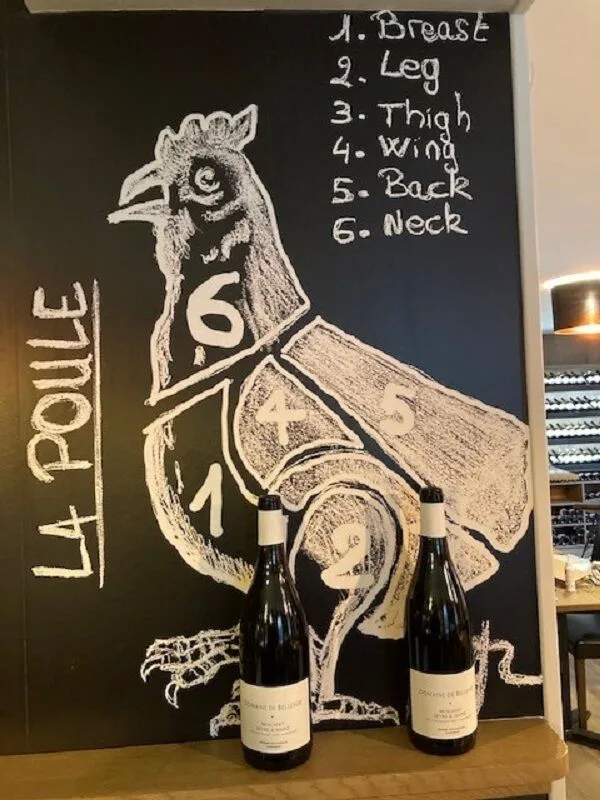 1. Breast
2. Leg
3. Thigh
4. Wing
5. Back
6. Neck
LA POULE
6
5
4
1
2
DOMAINE DE BELLEVUE
MUSCADET
SÈVRE & MAINE
DOMAINE DE BELLEVUE
MUSCADET
SÈVRE & MAINE